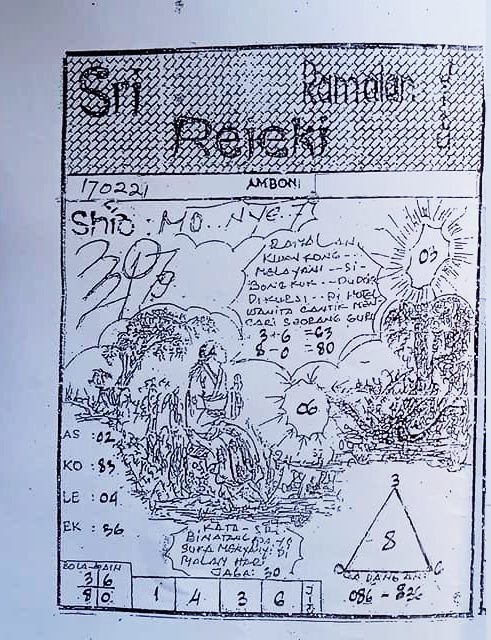 Sri
Ramalan
Rejeki
170221
AMBON
Shio : MO..NYE.T
03
RAMALAN
KWAN KONG..
MELAYANI -- SI -
BONGKOK -- DUDUK
DI KURSI .. DI HOTEL
WANITA CANTIK MEN
CARI SEORANG GURU
3+6 =63
8-0 =80
06
AS : 02
KO : 83
LE : 04
EK : 36
KATA -
BINATANG
SUKA MENYANYI DI
MALAM HARI
JAGA: 30
3
8
0 6
086 - 836
BOLA MAIN
3 6
8 0
1 4 3 6